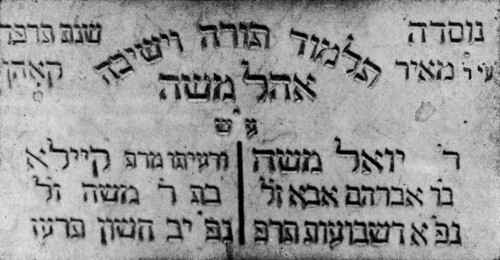 נוסדה תלמוד תורה וישיבה שנת
ע״י ר׳ מאיר קאהן
אהל משה
ע״ש
ר׳ יואל משה
בר אברהם אבא ז״ל
נפ׳ א דשבועות תרפ
ורעיתו מרת קיילא
בת ר׳ משה ז״ל
נפ׳ יב חשון תרעו